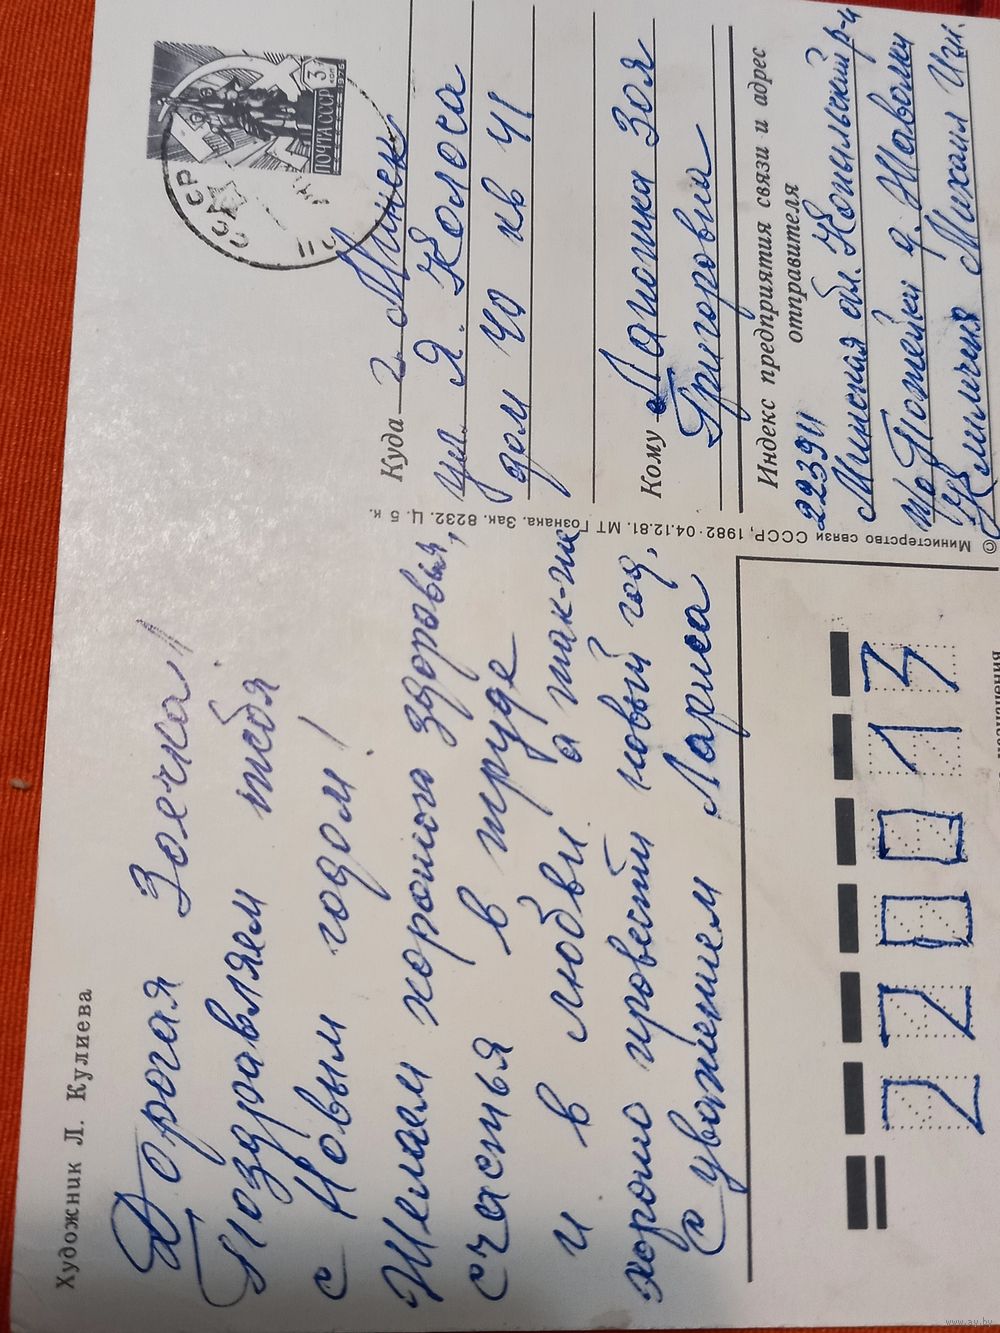 Художник Л. Кулиева
Дорогая Зоечка!
Поздравляем тебя
с Новым годом!
Желаем хорошого здоровья,
счастья в труде
и в любви а так-же
хорошо провести новый год.
С уважением Лариса
ПОЧТА СССР
3
КОП
1976
СССР
Куда г. Минск
ул. Я. Коласа
дом 40 кв 41
Кому Лапошка Зоя
Григоровна
Индекс предприятия связи и адрес
отправителя
223911
Минская обл. Копыльский р-н
п/о Потейки д. Жаволки
Климченя Михаил Игн.
© Министерство связи СССР, 1982·04.12.81. МТ Гознака. Зак. 8232. Ц. 5 к.
220013
назначения
www.ay.by